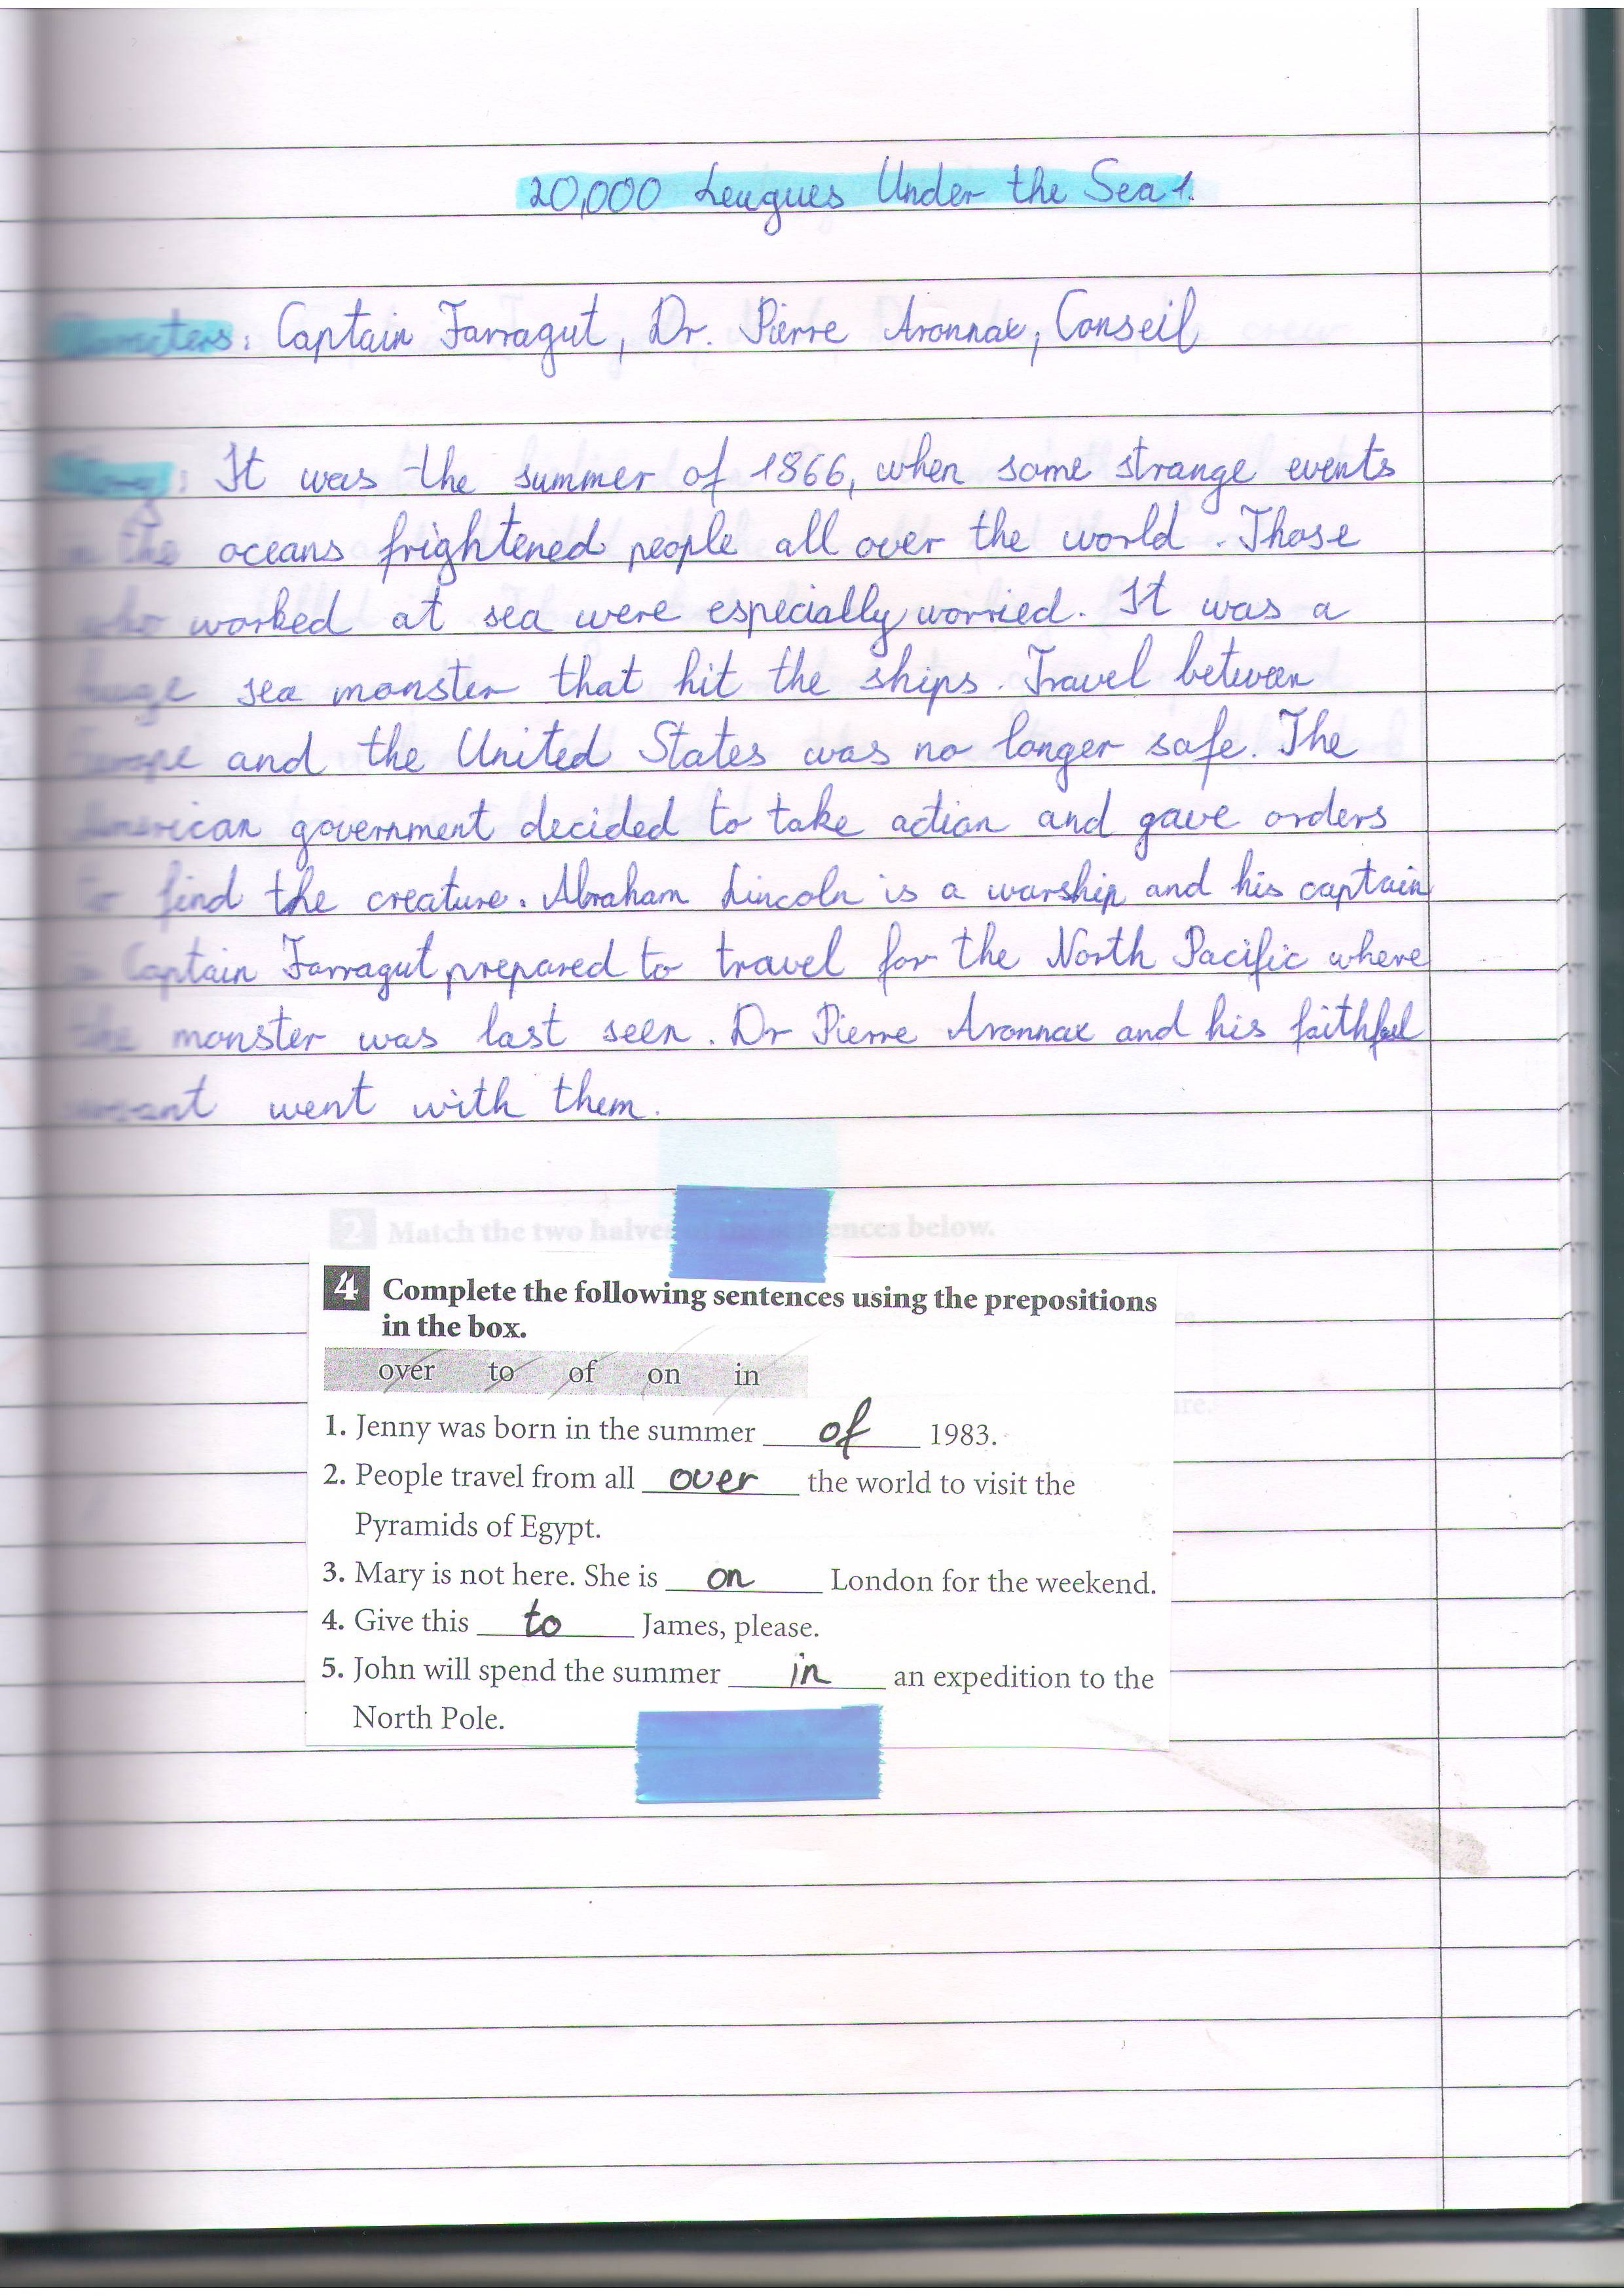 20,000 Leagues Under the Sea 1.
: Captain Farragut, Dr. Pierre Aronnax, Conseil
: It was the summer of 1866, when some strange events
in the oceans frightened people all over the world. Those
who worked at sea were especially worried. It was a
huge sea monster that hit the ships. Travel between
Europe and the United States was no longer safe. The
American government decided to take action and gave orders
to find the creature. Abraham Lincoln is a warship and his captain
is Captain Farragut prepared to travel for the North Pacific where
the monster was last seen. Dr Pierre Aronnax and his faithful
went with them.
2 Match the two halves of the sentences below.
4 Complete the following sentences using the prepositions
in the box.
over to of on in
1. Jenny was born in the summer of 1983.
2. People travel from all over the world to visit the
Pyramids of Egypt.
3. Mary is not here. She is on London for the weekend.
4. Give this to James, please.
5. John will spend the summer in an expedition to the
North Pole.